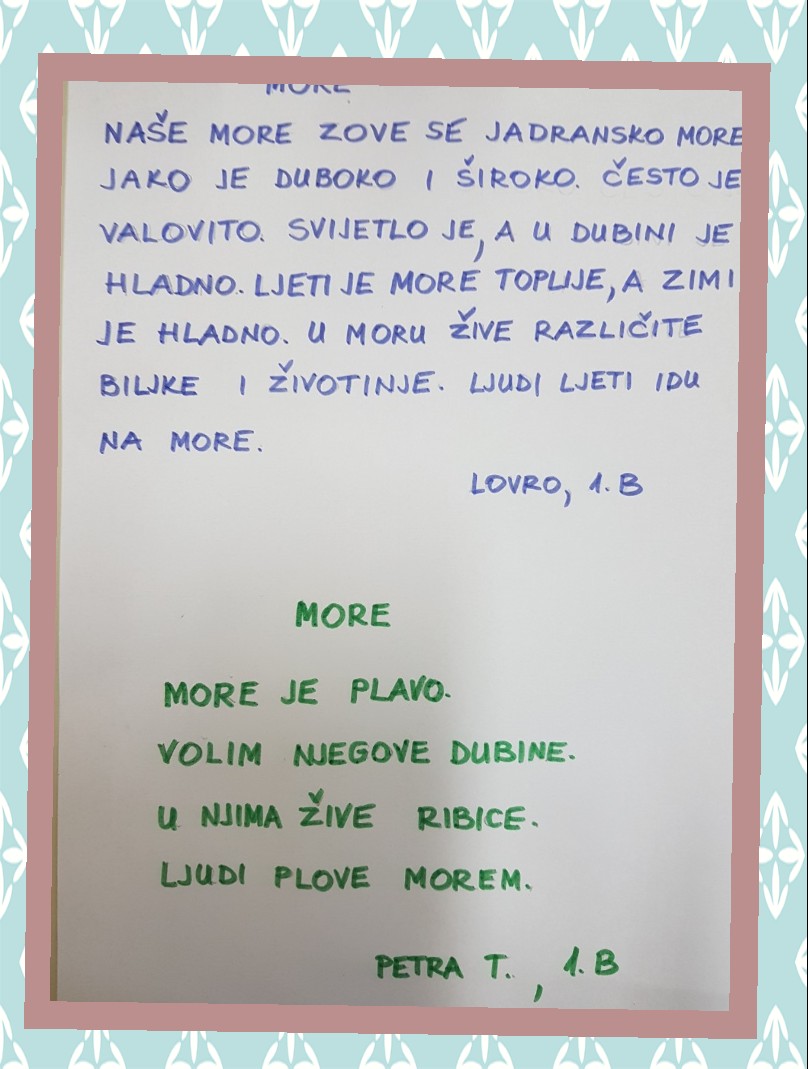 MORE
NAŠE MORE ZOVE SE JADRANSKO MORE
JAKO JE DUBOKO I ŠIROKO. ČESTO JE
VALOVITO. SVIJETLO JE, A U DUBINI JE
HLADNO. LJETI JE MORE TOPLIJE, A ZIMI
JE HLADNO. U MORU ŽIVE RAZLIČITE
BILJKE I ŽIVOTINJE. LJUDI LJETI IDU
NA MORE.
LOVRO, 1. B
MORE
MORE JE PLAVO.
VOLIM NJEGOVE DUBINE.
U NJIMA ŽIVE RIBICE.
LJUDI PLOVE MOREM.
PETRA T. , 1. B